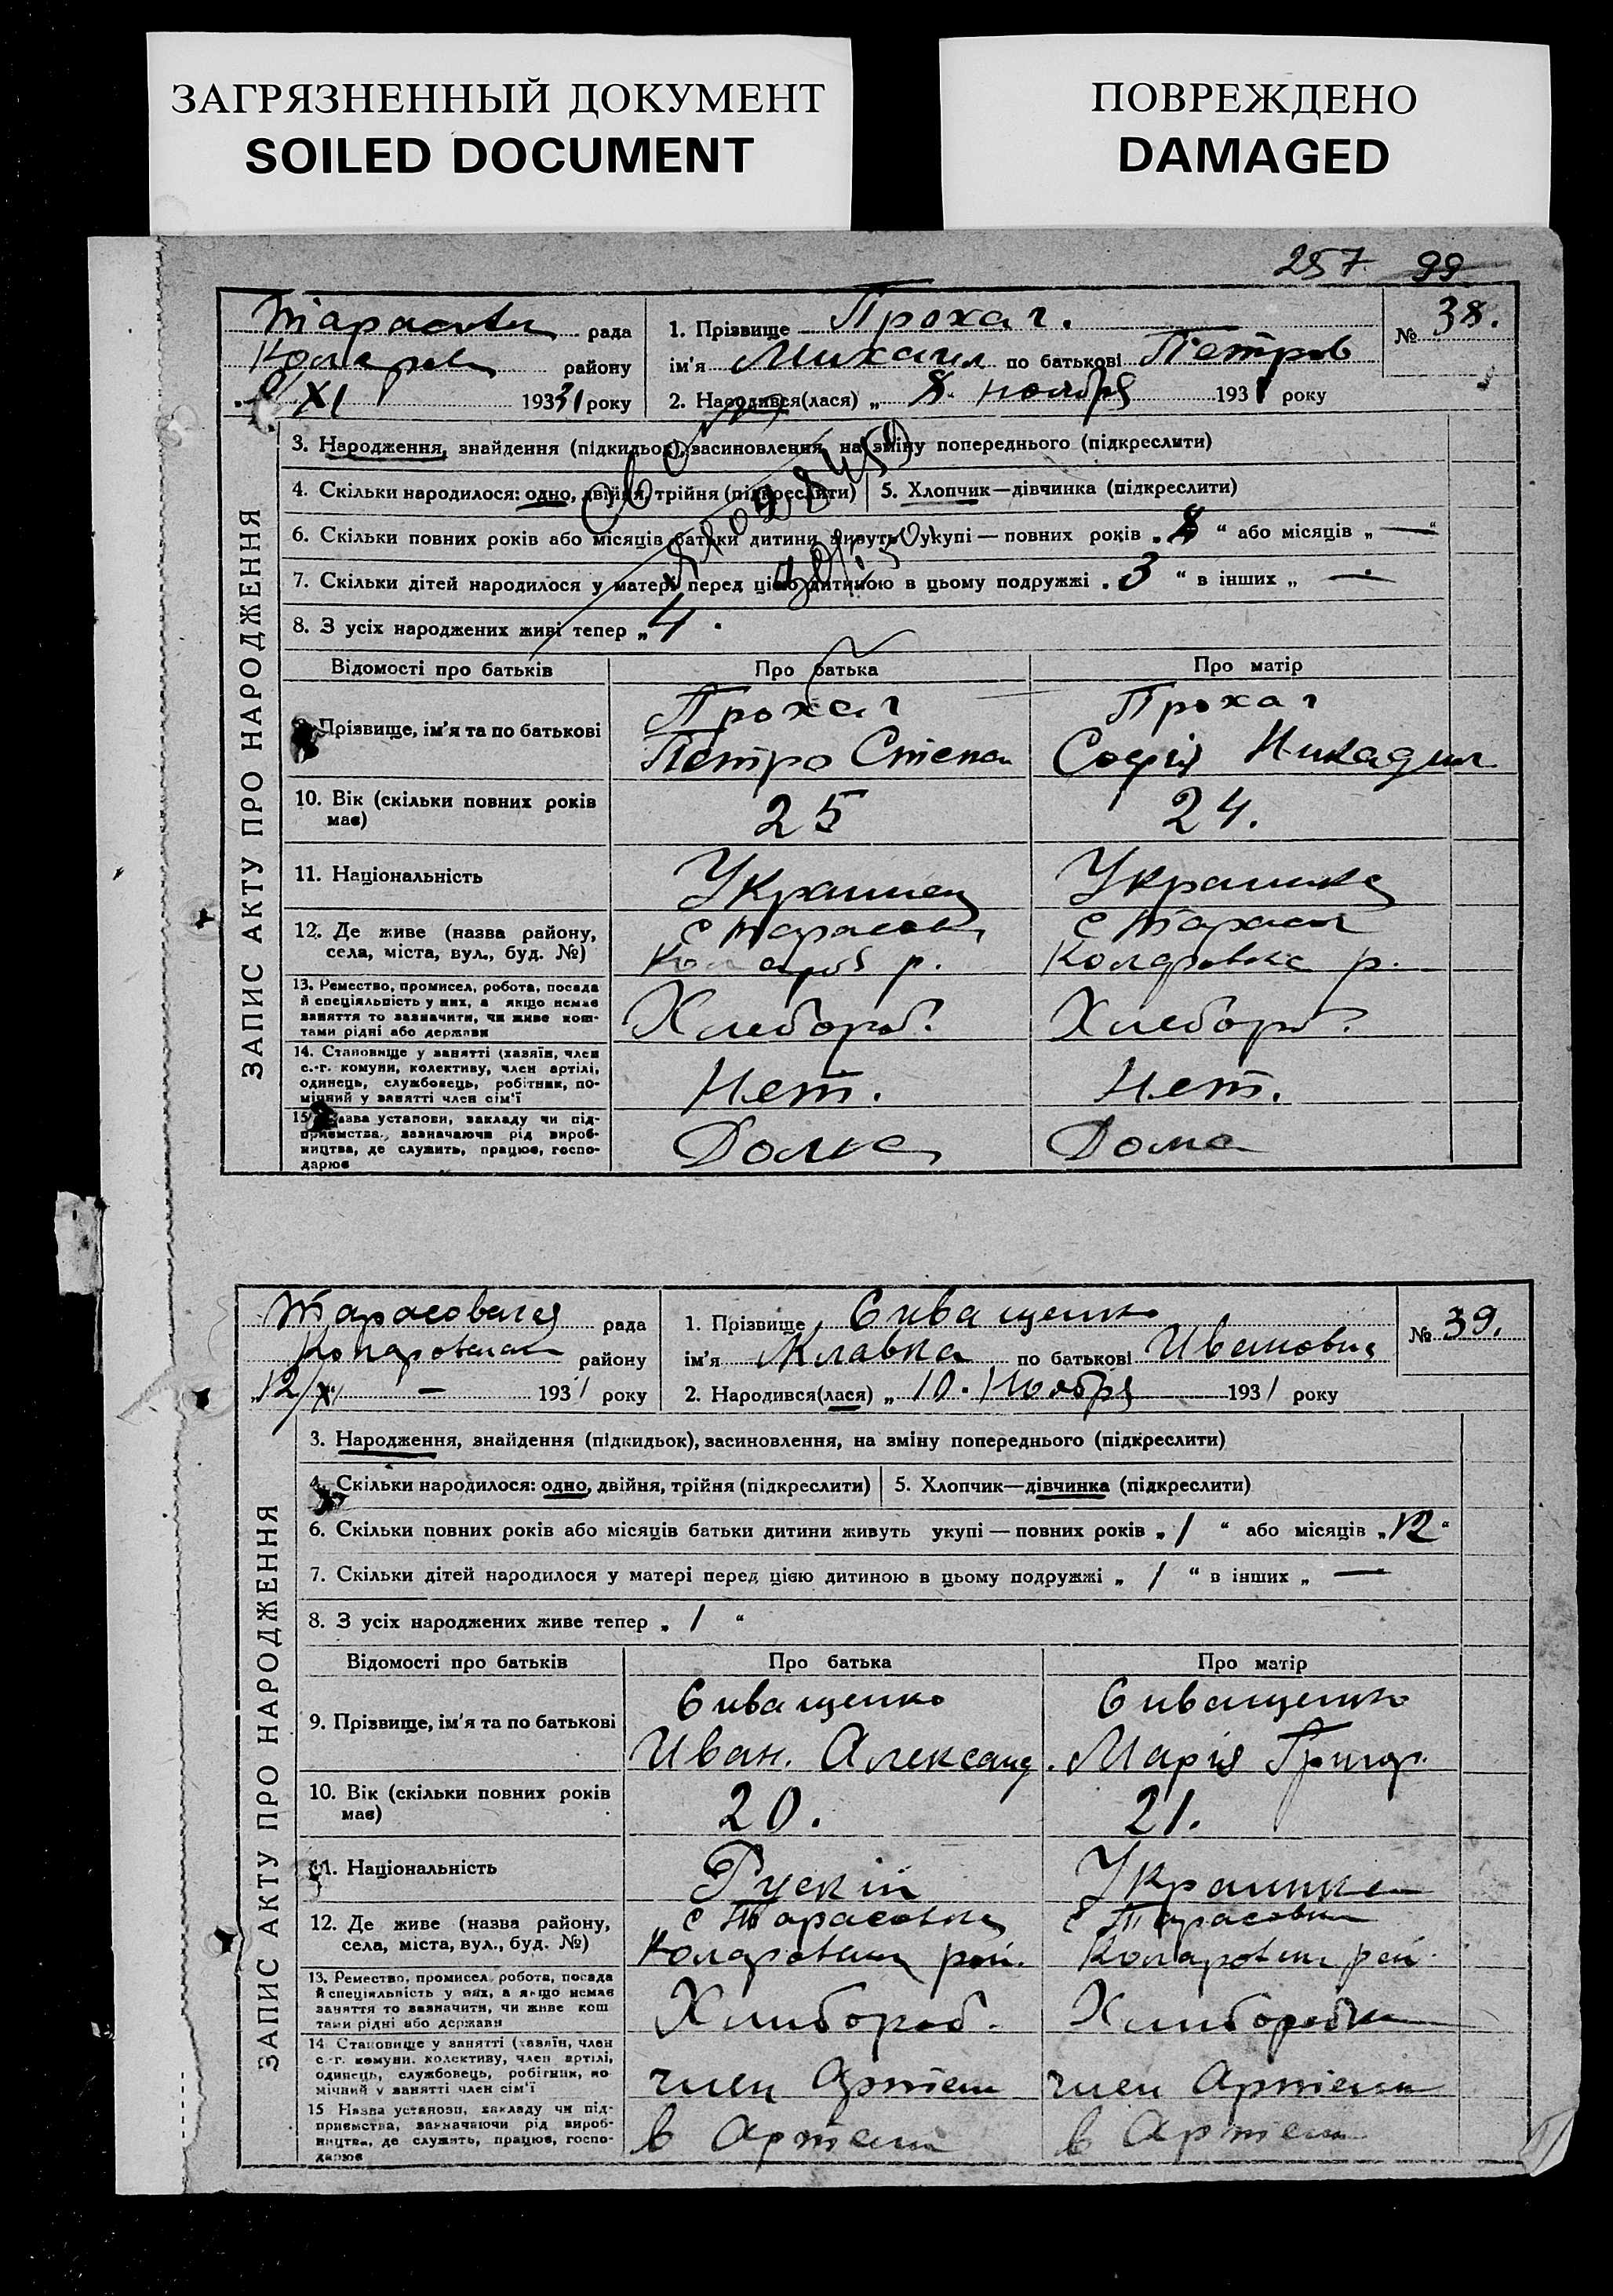 ЗАГРЯЗНЕННЫЙ ДОКУМЕНТ
SOILED DOCUMENT
ПОВРЕЖДЕНО
DAMAGED
257. 99
рада
району
XI 1931 року
1. Прізвище Прохач.
ім'я Михаил по батькові Петров
2. Народився(лася) „ 8. ноября 1931 року
№ 38.
ЗАПИС АКТУ ПРО НАРОДЖЕННЯ
3. Народження, знайдення (підкидьок), засиновлення, на зміну попереднього (підкреслити)
4. Скільки народилося: одно, двійня, трійня (підкреслити) 5. Хлопчик—дівчинка (підкреслити)
6. Скільки повних років або місяців батьки дитини живуть укупі — повних років „ “ або місяців „ — “
7. Скільки дітей народилося у матері перед цією дитиною в цьому подружжі „ 3 “ в інших „ —
8. З усіх народжених живі тепер „ 4.
Відомості про батьків Про батька Про матір
Прізвище, ім'я та по батькові
Прохач
Петро Степан
Прохач
Софія
10. Вік (скільки повних років має)
25
24.
11. Національність
Украинец
Украинка
12. Де живе (назва району,
села, міста, вул., буд. №)
с Тарасовка
р.
с Тарасов
р.
13. Ремество, промисел, робота, посада
й спеціяльність у них, а якщо немає
заняття то зазначити, чи живе кош-
тами рідні або держави
Хлебороб.
Хлебороб.
14. Становище у занятті (хазяїн, член
с.-г. комуни, колективу, член артілі,
одинець, службовець, робітник, по-
мічний у занятті член сім'ї
Нет.
Нет.
15. Назва установи, закладу чи під-
приємства, зазначаючи рід вироб-
ництва, де служить, працює, госпо-
дарює
Дома
Дома
рада
району
12/XI — 1931 року
1. Прізвище Сиващенко
ім'я Клавка по батькові Ивановна
2. Народився(лася) „ 10. Ноября 1931 року
№ 39.
ЗАПИС АКТУ ПРО НАРОДЖЕННЯ
3. Народження, знайдення (підкидьок), засиновлення, на зміну попереднього (підкреслити)
4. Скільки народилося: одно, двійня, трійня (підкреслити) 5. Хлопчик—дівчинка (підкреслити)
6. Скільки повних років або місяців батьки дитини живуть укупі — повних років „ 1 “ або місяців „ 12 “
7. Скільки дітей народилося у матері перед цією дитиною в цьому подружжі „ 1 “ в інших „ —
8. З усіх народжених живе тепер „ 1 “
Відомості про батьків Про батька Про матір
9. Прізвище, ім'я та по батькові
Сиващенко
Иван. Александ.
Сиващенко
Марія Григор.
10. Вік (скільки повних років має)
20.
21.
11. Національність
Рускій
Украинка
12. Де живе (назва району,
села, міста, вул., буд. №)
с Тарасовка
рай.
с Тарасовка
рай.
13. Ремество, промисел, робота, посада
й спеціяльність у них, а якщо немає
заняття то зазначити, чи живе кош
тами рідні або держави
Хлибороб.
Хлиборобка
14 Становище у занятті (хазяїн, член
с.-г. комуни, колективу, член артілі,
одинець, службовець, робітник, по-
мічний у занятті член сім'ї
член Артели
член Артели
15 Назва установи, закладу чи під-
приємства, зазначаючи рід вироб-
ництва, де служить, працює, госпо-
дарює
в Артели
в Артели